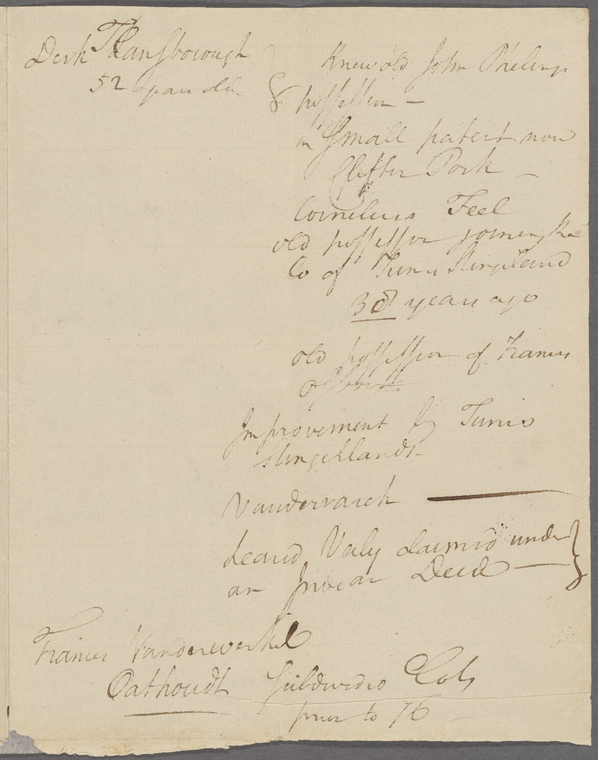 Derk
52 years old
Knew old John Phelings
& possession —
in Small patent now
Clifton Park —
Cornelius Feel
old possessor joining the
Lo of Tunis Slingeland
30 years ago
old possession of Francis
Improvement by Tunis
Slingellandt
Vanderwarck —
deared Valy claimed under
an Indian Deed —
Francis Vanderwerkel
Oathoudt Lots
prior to 76